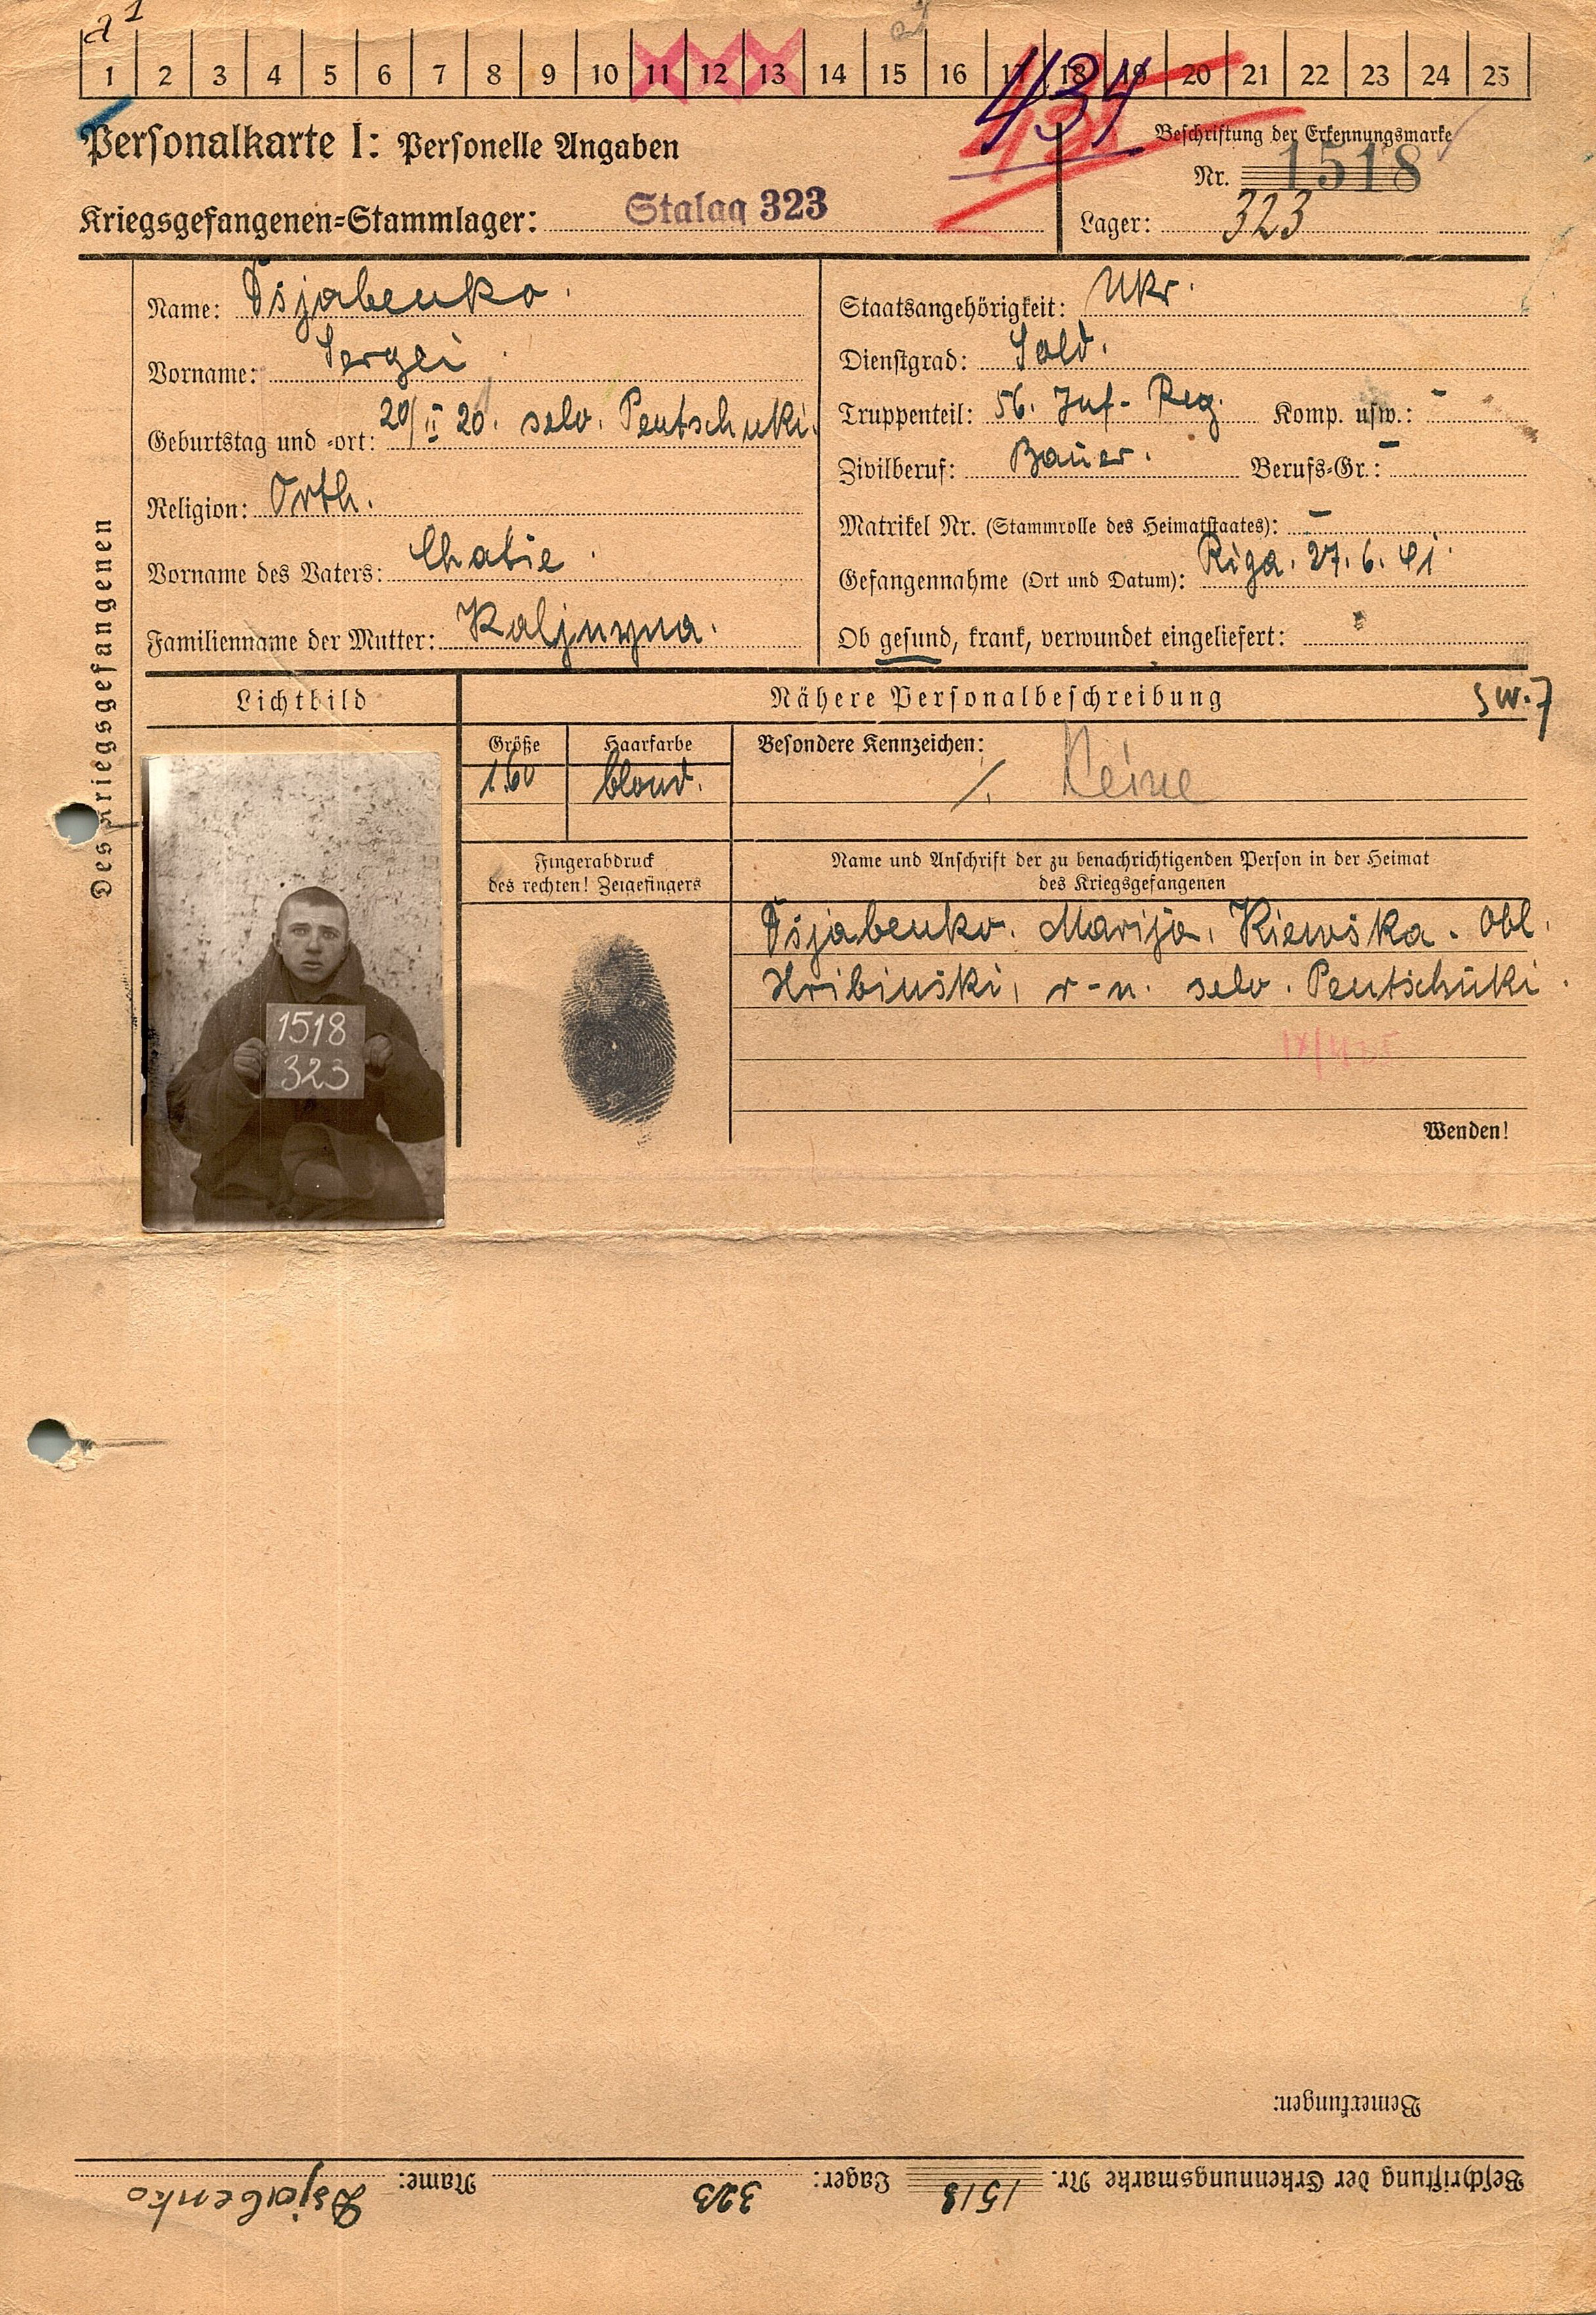 1 2 3 4 5 6 7 8 9 10 11 12 13 14 15 16 17 18 19 20 21 22 23 24 25
434
Personalkarte I: Personelle Angaben
Beschriftung der Erkennungsmarke
Nr. 1518
Kriegsgefangenen-Stammlager: Stalag 323
Lager: 323
Des Kriegsgefangenen
Name: Dsjabenko.
Vorname: Sergei
Geburtstag und -ort: 20/II 20. selo. Pentschuki.
Religion: Orth.
Vorname des Vaters: Chatie
Familienname der Mutter: Kaljnyna.
Staatsangehörigkeit: Ukr.
Dienstgrad: Sold.
Truppenteil: 56. Inf- Reg. Komp. usw.: -
Zivilberuf: Bauer. Berufs-Gr.: -
Matrikel Nr. (Stammrolle des Heimatstaates): -
Gefangennahme (Ort und Datum): Riga. 27.6.41
Ob gesund, krank, verwundet eingeliefert:
Lichtbild
Nähere Personalbeschreibung
sw.7
Größe
1.60
Haarfarbe
blond.
Besondere Kennzeichen:
/. Keine
1518
323
Fingerabdruck
des rechten! Zeigefingers
Name und Anschrift der zu benachrichtigenden Person in der Heimat
des Kriegsgefangenen
Dsjabenko. Marija, Kiewska. Obl.
Hribinski, r-n. selo. Pentschuki.
Wenden!
Bemerkungen:
Beschriftung der Erkennungsmarke Nr. 1518 Lager: 323 Name: Dsjabenko